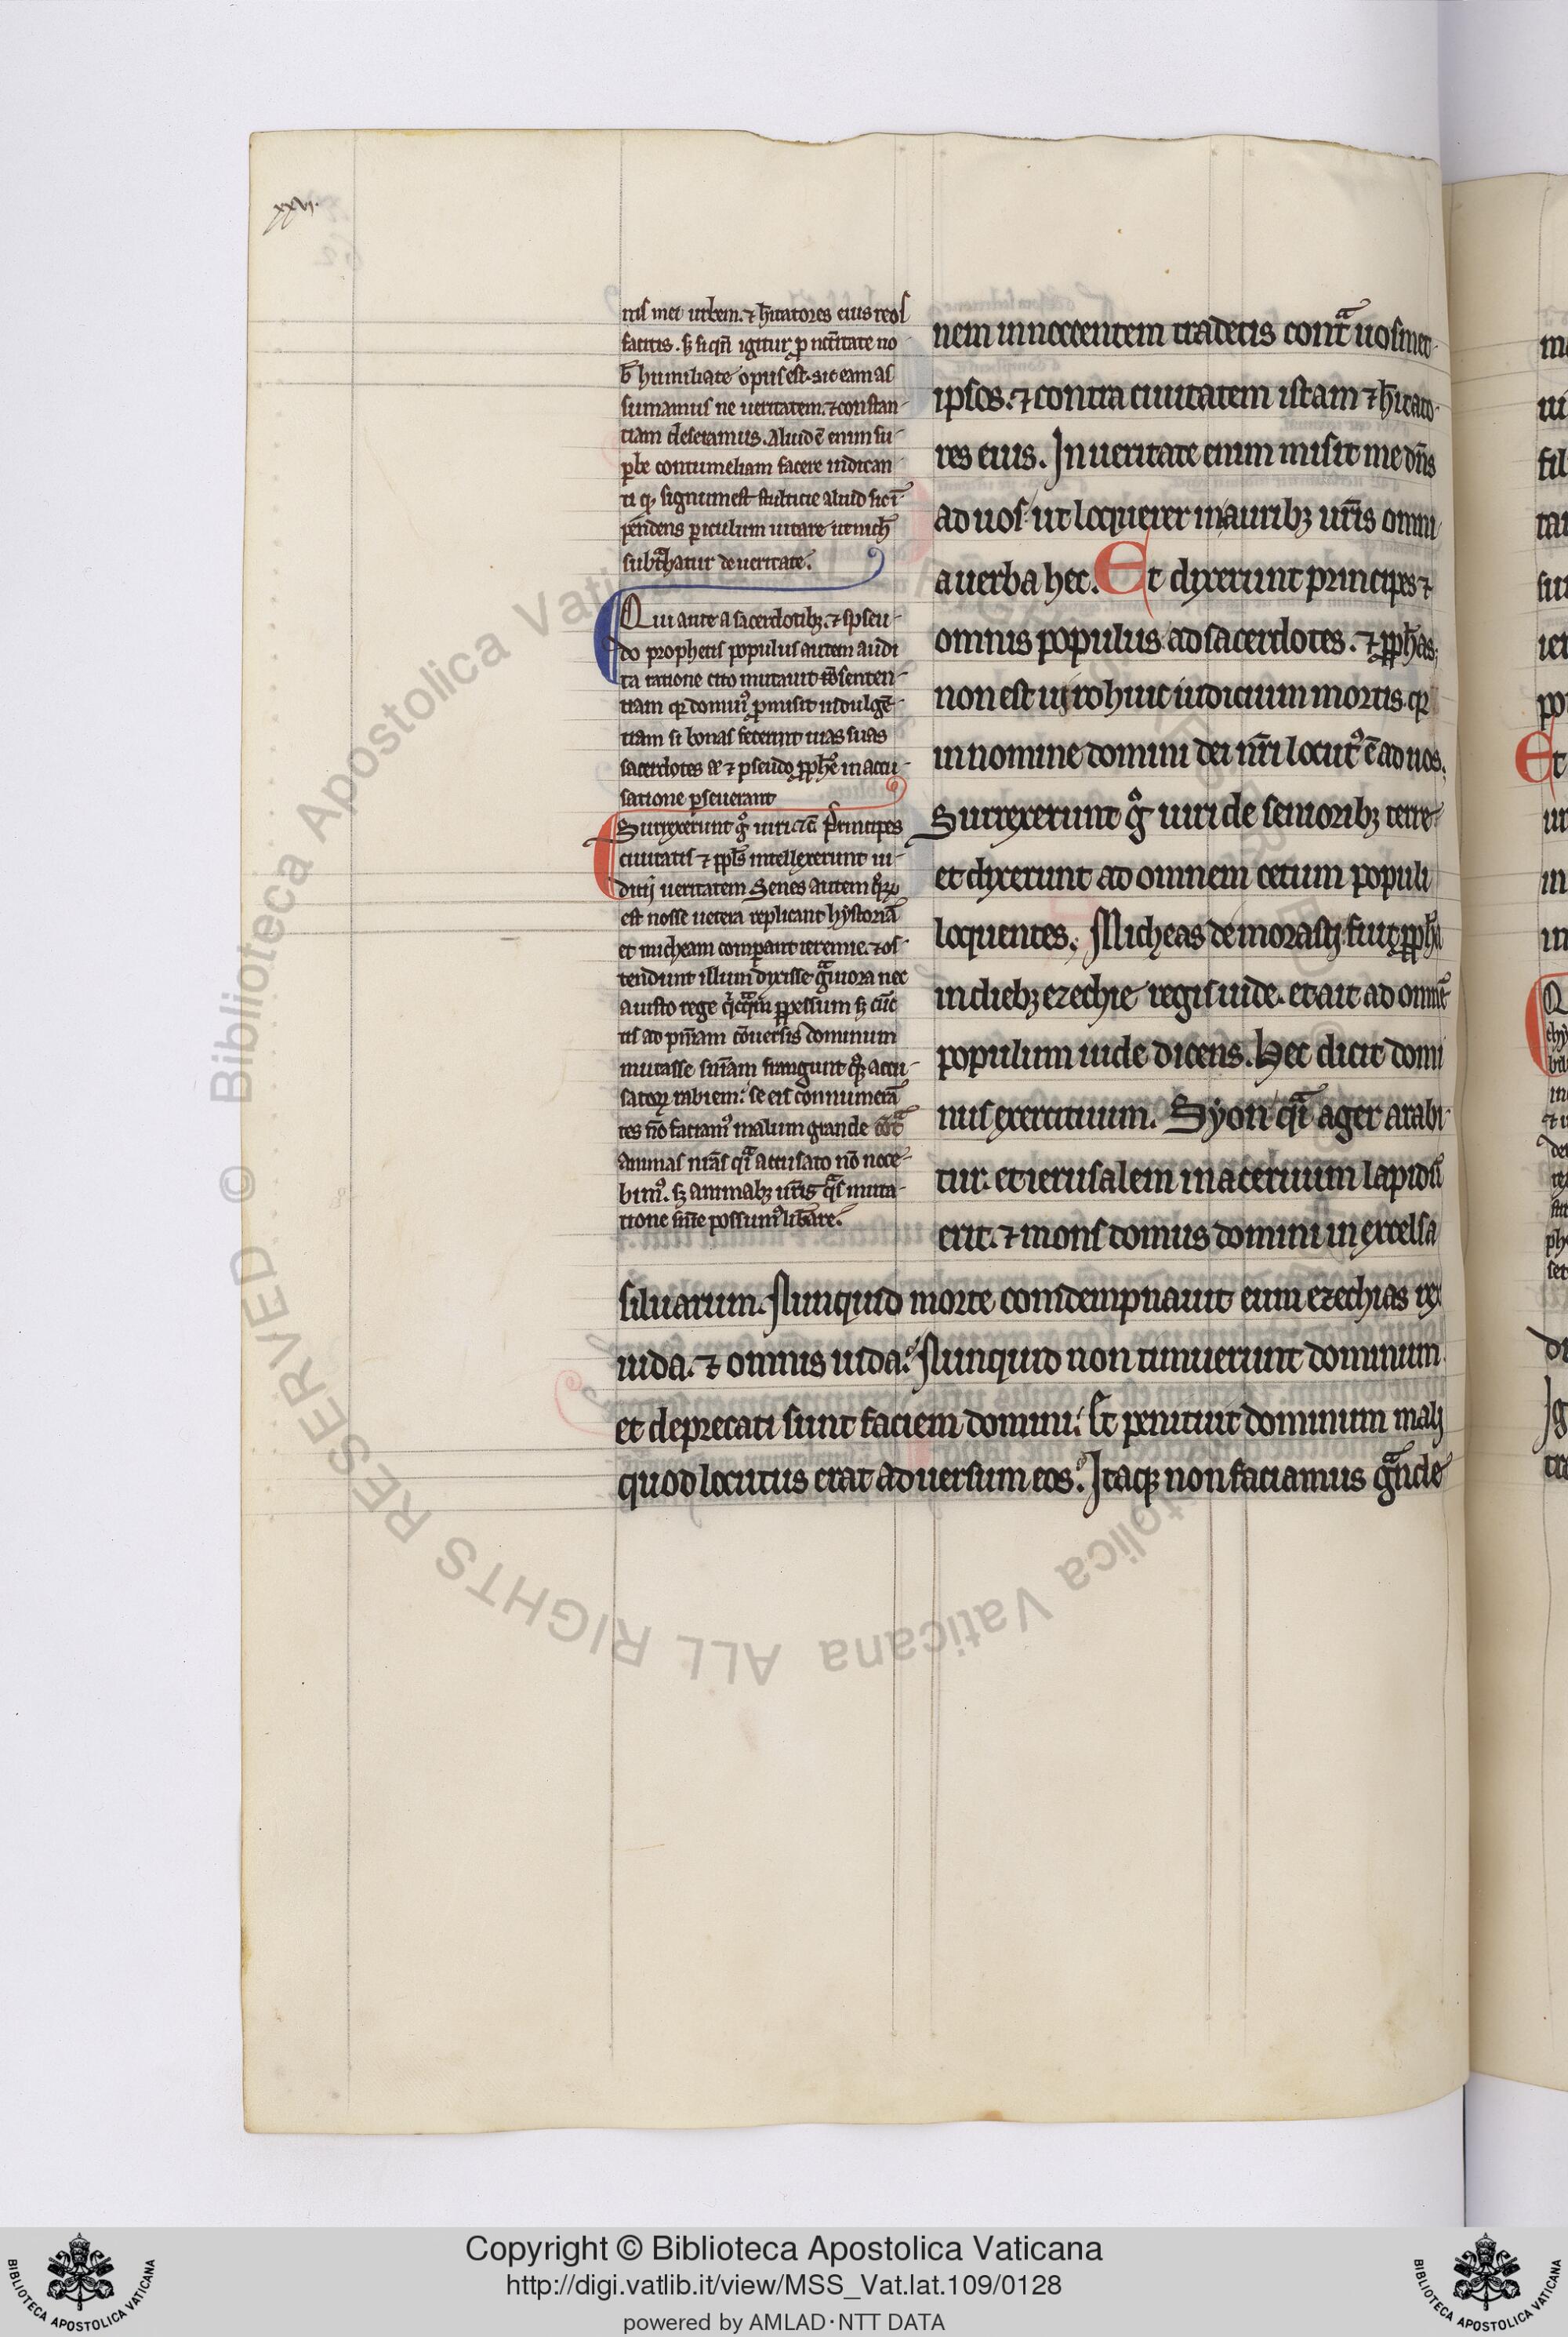 xxvi.
nis mei urbem. ⁊ hītatores eius reos
facitis. sꝫ siqn̄ igitur ꝓ nccītate no
b̄ humiliate opus est. sic eam as
sumamus ne ueritatem. ⁊ constan-
tiam deseramus. Aliud ē enim su-
ꝑbe contumeliam facere iudican
ti qꝫ signum est stulticie aliud sic ī
pendens ꝑiculum uitare ut nich̄
subtͣhatur de ueritate.
Qui ante a sacerdotibꝫ. ⁊ pseu-
do prophetis populus autem audi
ta ratione cito mutauit senten-
tiam qꝛ dominꝰ ꝓmisit indulgē
tiam si bonas fecerint uias suas
sacerdotes ⁊ pseudo ꝓph̄e in accu-
satione ꝑseuerant
Surrexerunt gͦ uiri principes
ciuitatis ⁊ ppl̄s intellexerunt iu-
dicij ueritatem Senes autem qͦꝝ
est nosse uetera replicant hystoriā
et micheam comparant ieremie. ⁊ os-
tendunt illum dixisse gͣuiora nec
a iusto rege qͥcqͣm ꝑpessum sꝫ cūc
tis ad pn̄iam cōuersis dominum
mutasse sn̄iam frangunt qꝫ accu-
satoꝝ rabiem: se eis connumerā
tes nō faciamꝰ malum grande cōtͣ
animas nr̄as qͥa accusato nō noce-
bimꝰ. sꝫ animabꝫ nr̄is muta-
tione sn̄ie possumꝰ lib̄are.
nem innocentem tradetis contͣ uosmet-
ipsos. ⁊ contra ciuitatem istam ⁊ hītato-
res eius. In ueritate enim misit me dn̄s
ad uos ut loquerer in auribꝫ ur̄is omni
a uerba hec. Et dixerunt principes ⁊
omnis populus ad sacerdotes. ⁊ ꝓph̄as;
non est uiro huic iudicium mortis. qꝛ
in nomine domini dei nr̄i locutꝰ ē ad nos.
Surrexerunt gͦ uiri de senioribꝫ terre
et dixerunt ad omnem cetum populi
loquentes. Micheas de morasty fuit ꝓph̄a
in diebꝫ ezechie regis iude. et ait ad omnē
populum iude dicens. Hec dicit domi
nus exercituum. Syon qͣi ager arabi-
tur. et ierusalem in aceruum lapidū
erit. ⁊ mons domus domini in excelsa
siluarum. Nunquid morte condempnauit eum ezechias rex
iuda. ⁊ omnis iuda? Nunquid non timuerunt dominum
et deprecati sunt faciem domini: Et penituit dominum mali
quod locutus erat aduersum eos? Itaqꝫ non faciamus gͣnde
© Biblioteca Apostolica Vaticana ALL RIGHTS RESERVED
Copyright © Biblioteca Apostolica Vaticana
http://digi.vatlib.it/view/MSS_Vat.lat.109/0128
powered by AMLAD·NTT DATA
BIBLIOTECA APOSTOLICA VATICANA
BIBLIOTECA APOSTOLICA VATICANA